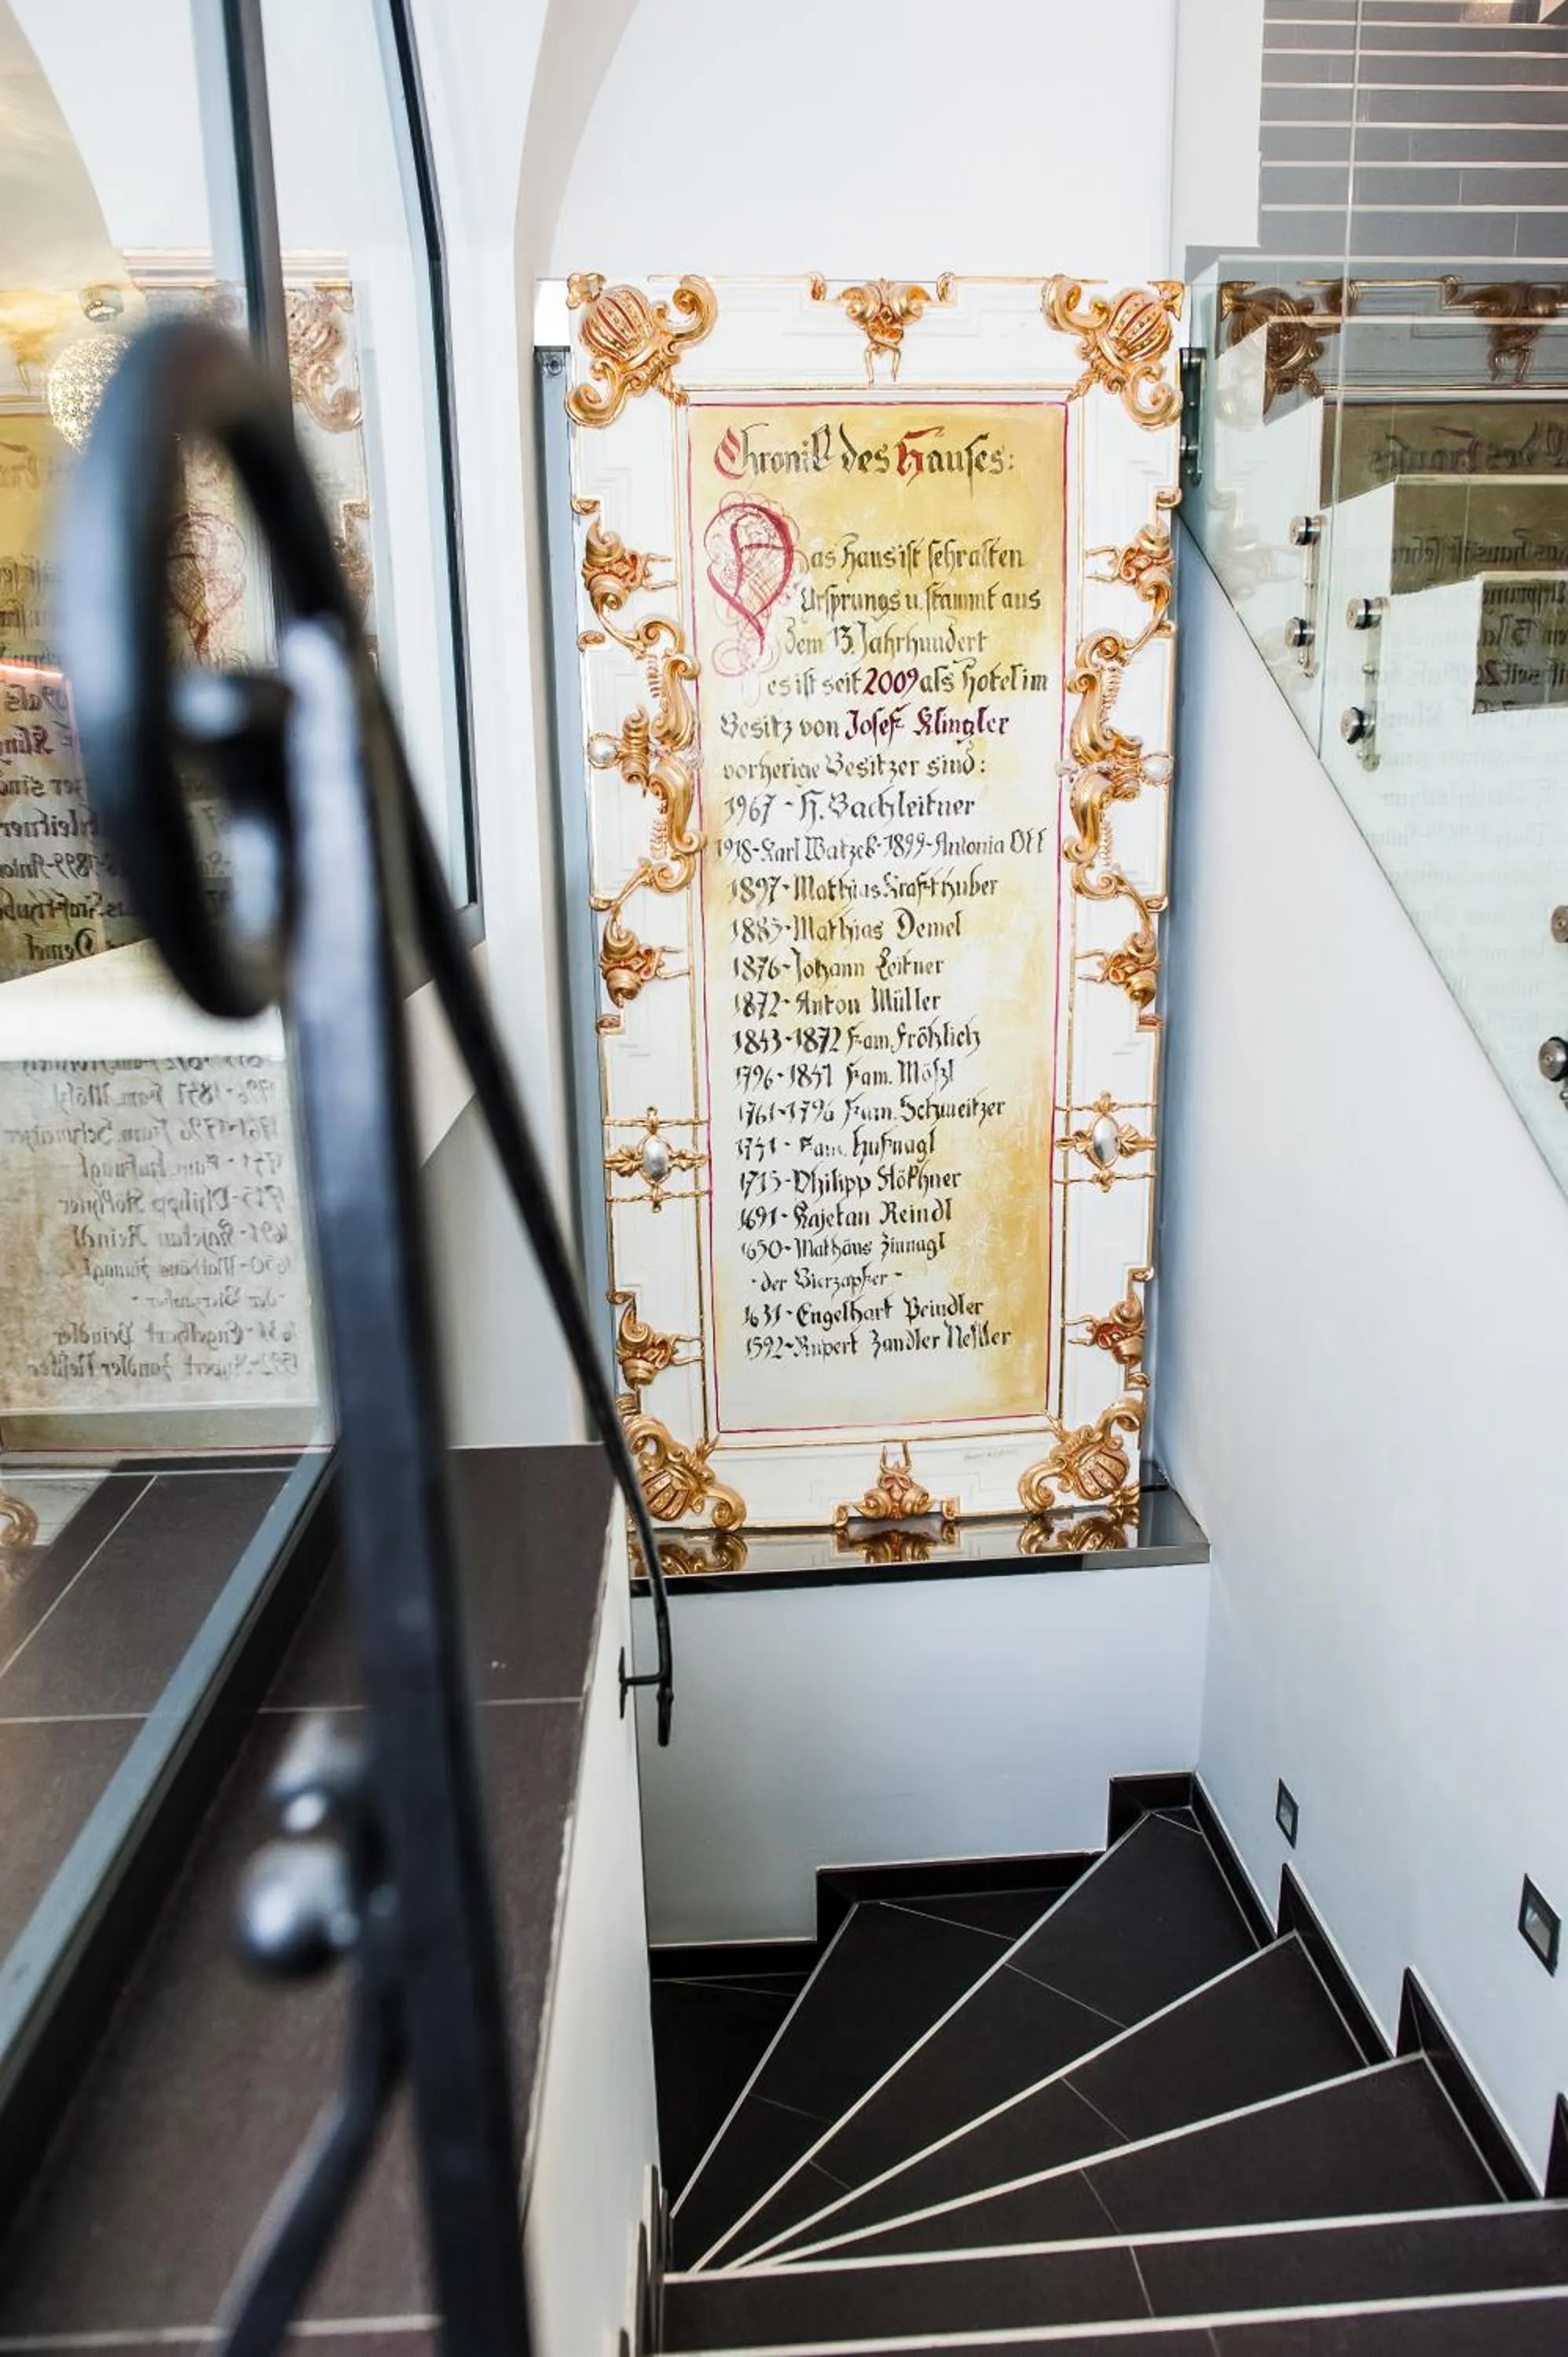 Chronik des Hauses:
Das Haus ist sehr alten
Ursprungs u. stammt aus
dem 13. Jahrhundert
es ist seit 2009 als Hotel im
Besitz von Josef Klingler
vorherige Besitzer sind:
1967 - H. Bachleitner
1918-Karl Watzek-1899-Antonia Ott
1897-Mathias Krafthuber
1883-Mathias Demel
1876-Johann Leitner
1872-Anton Müller
1843-1872 Fam. Fröhlich
1796-1841 Fam. Mößl
1761-1796 Fam. Schweitzer
1741 - Fam. Hufnagl
1715-Philipp Stökhner
1691-Kajetan Reindl
1650-Mathäus Zinnagl
-der Bierzapfer-
1631-Engelhart Peindler
1592-Rupert Zandler Neßler